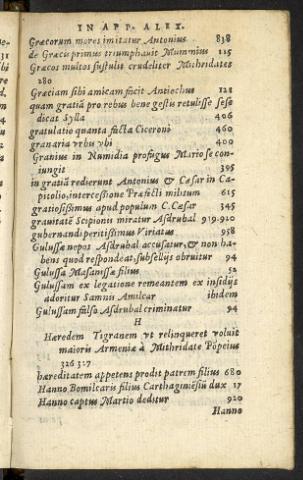 IN APP. ALEX.
Græcorum mores imitatur Antonius 838
de Græcis primus triumphauit Mummius 125
Græcos multos sustulit crudeliter Mithridates
280
Græciam sibi amicam facit Antiochus 121
quam gratiã pro rebus bene gestis retulisse sese
dicat Sylla 406
gratulatio quanta facta Ciceroni 460
granaria vrbis vbi 400
Granius in Numidia profugus Mario se con-
iungit 395
in gratiã redierunt Antonius & Cæsar in Ca-
pitolio, intercessione Præfecti militum 615
gratiosissimus apud populum C. Cæsar 345
grauitatẽ Scipionis miratur Asdrubal 919.920
gubernandi peritissimus Viriatus 958
Gulussæ nepos Asdrubal accusatur, & non ha-
bens quod respondeat, subsellijs obruitur 94
Gulussa Masanissæ filius 52
Gulussam ex legatione remeantem ex insidijs
adoritur Samnis Amilcar ibidem
Gulussam falso Asdrubal criminatur 94
H
Hæredem Tigranem vt relinqueret voluit
maioris Armeniæ à Mithridate Põpeius
326 327
hæreditatem appetens prodit patrem filius 680
Hanno Bomilcaris filius Carthaginẽsiũ dux 17
Hanno captus Martio deditur 920
Hanno